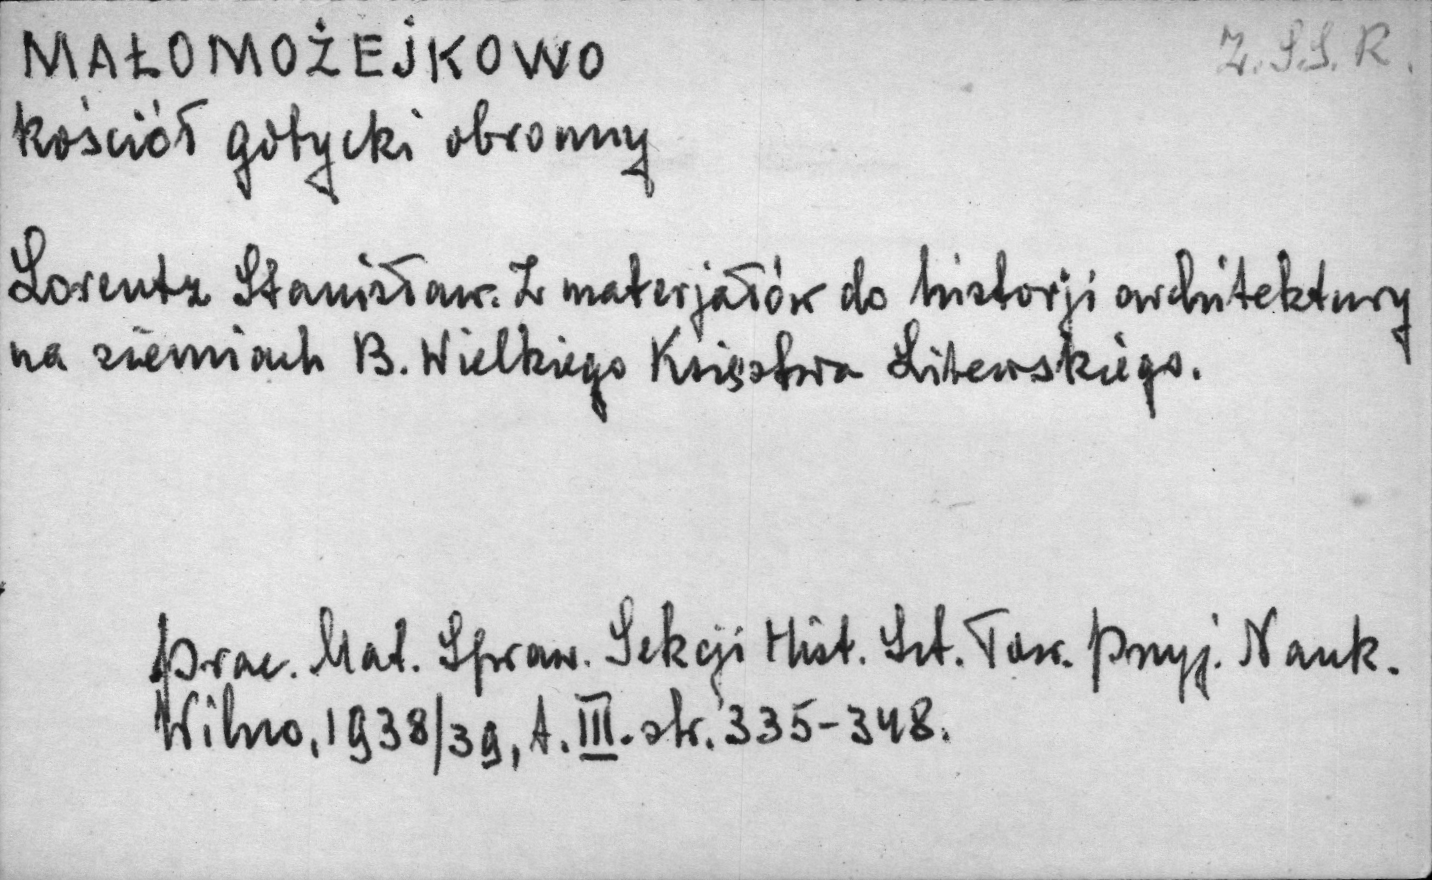 MAŁOMOŻEJKOWO
Z.S.S.R.
kościół gotycki obronny
Lorentz Stanisław. Z materjałów do historji architektury
na ziemiach B. Wielkiego Księstwa Litewskiego.
Prac. Mat. Spraw. Sekcji Hist. Szt. Tow. Przyj. Nauk.
Wilno, 1938/39, t. III. str. 335-348.